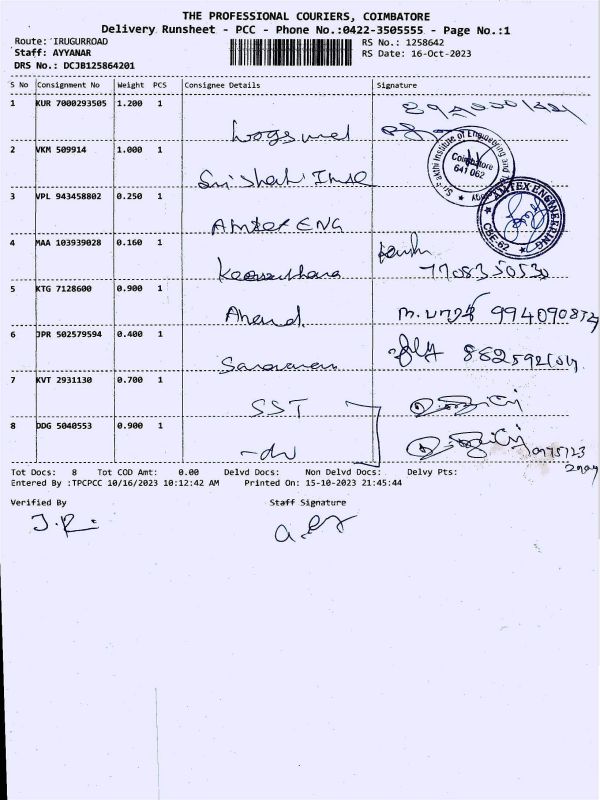 THE PROFESSIONAL COURIERS, COIMBATORE
Delivery Runsheet - PCC - Phone No.:0422-3505555 - Page No.:1
Route: IRUGURROAD
RS No.: 1258642
Staff: AYYANAR
RS Date: 16-Oct-2023
DRS No.: DCJB125864201
S No Consignment No Weight PCS Consignee Details Signature
1 KUR 7000293505 1.200 1
2 VKM 509914 1.000 1
Institute of Engineering and
Coimbatore
641 062
3 VPL 943458802 0.250 1
Amtex ENG
AMTEX ENGINEERING
CBE-62
4 MAA 103939028 0.160 1
7708350530
5 KTG 7128600 0.900 1
Anand.
6 JPR 502579594 0.400 1
Saravanan
7 KVT 2931130 0.700 1
SST
8 DDG 5040553 0.900 1
-do
Tot Docs: 8 Tot COD Amt: 0.00 Delvd Docs: Non Delvd Docs: Delvy Pts:
Entered By :TPCPCC 10/16/2023 10:12:42 AM Printed On: 15-10-2023 21:45:44
Verified By Staff Signature